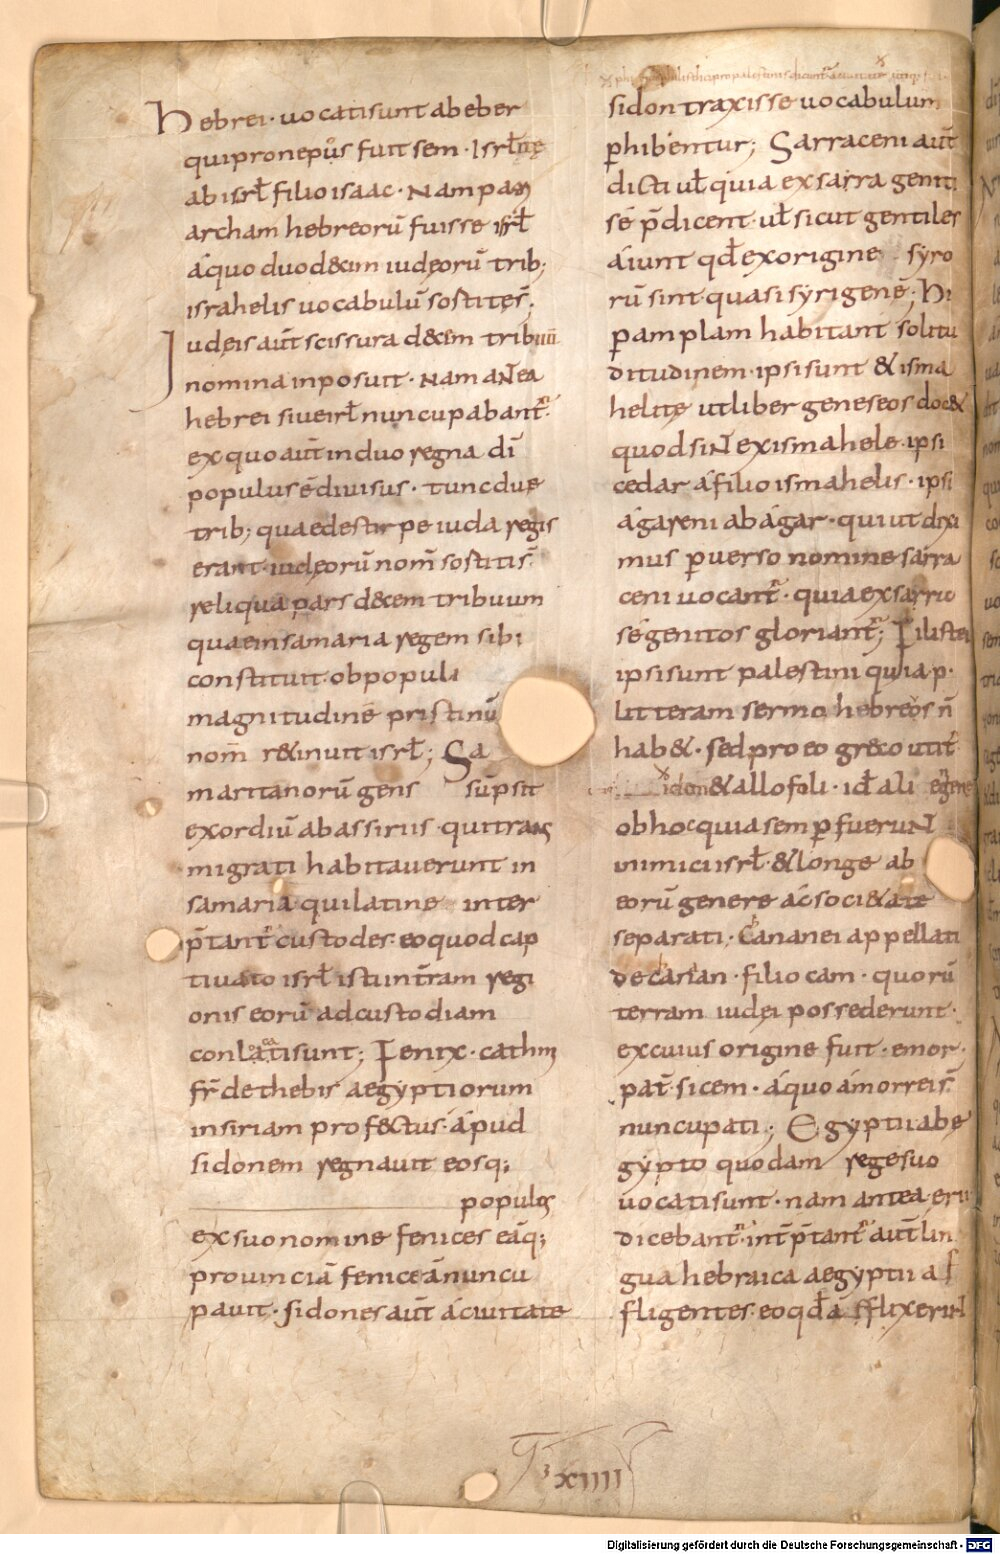 Hebrei · uocatisunt abeber
quipronepůs fuit sem · Isrł̄itę
abisrł filio isaac · Nam patri
archam hebreorū fuisse isrł
áquo duod&cim iudęorū trib;
israhelis uocabulū sostites̄.
Iudęis aūt scissura d&cem tribuū
nomina inposuit · Nam aNtea
hebrei siue irł nuncupabant̄.
ex quo aūt induo regna dī
populus ē diuisus · tunc due
trib; quae destirpe iuda regis
erant iudęorū nom̄ sostitis̄.
reliqua pars d&cem tribuum
quae insamaria regem sibi
constituit · ob populi
magnitudinē pristinū
nom̄ r&inuit isrł; Sa
maritanorū gens sūpsit
exordiū abassiriis · qui trans
migrati habitauerunt in
samaria · qui latine inter
p̄tant̄ custodes · eo quod cap
tiuato isrł istum t̄ram regi
onis eorū adcustodiam
conlatisunt; Fenix · cathmi
fr̄ de thebis aegyptiorum
insiriam prof&ctus · ápud
sidonem regnauit eosq;
populos
exsuonomine fenices eāq;
prouinciā feniceā nuncu
pauit · sidones aūt áciuitate
sidon traxisse uocabulum
p̄hibentur; Sarraceni aūt
dicti uł quia exsarra geniti
sé p̄dicent · uł sicut gentiles
áiunt qđ exorigine syro
rū sint · quasi syrigenę · Hi
pam plam habitant solitu
ditudinem · ipsi sunt & isma
helitę ut liber geneseos doc&
quod siNt ex ismahele · ipsi
cedar áfilio ismahelis · ipsi
ágareni ab ágar · qui ut dixi
mus puerso nomine sarra
ceni uocant̄ · quia exsarra
sé genitos gloriant̄; Filistei
ipsi sunt palestini quia p ·
litteram sermo hebreos n̄
hab& · sed pro eo greco utit̄
idon & allofoli · id̄ ali egene
obhoc quia semp fueruNt
inimici isrł · & longe ab
eorū genere ác soci&ate
separati · Cananei appellati
de canan · filio cam · quorū
terram iudęi possederunt ·
excuius origine fuit · emor ·
pat̄ · sicem · áquo ámorreis̄
nuncupati; Egyptii abę
gypto quodam rege suo
uocatisunt · nam antea erii
dicebant̄ · int̄p̄tant̄ aūt lin
gua hebraica aegyptii af
fligentes · eo qđ áfflixeriNt
XIIII
Digitalisierung gefördert durch die Deutsche Forschungsgemeinschaft - DFG